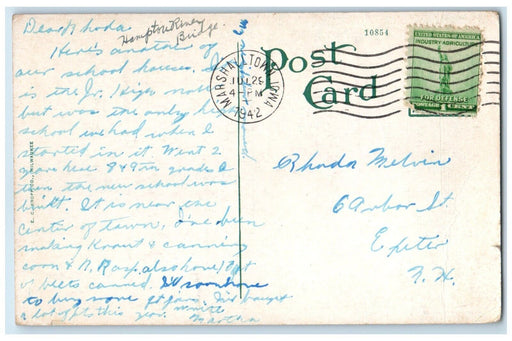 Dear Rhoda
Hampton Riney
Bridge.
Here's another of
our school houses. It
is the Jr. High now
but was the only high
school we had when I
started in it. Went 2
years here 8 & 9th grades &
then the new school was
built. It is near the
center of town. I've been
making Kraut & canning
corn & R. Rasp. also have 1
of beets canned.
to buy some jars.
a lot of pts this year. Write
Martha
10854
Post
Card
MARSHALLTOWN IOWA
JUL 29
4 - PM
1942
UNITED STATES OF AMERICA
INDUSTRY AGRICULTURE
FOR DEFENSE
POSTAGE 1 CENT
Rhoda Melvin
6 Arbor St.
Exeter
N. H.
MILWAUKEE